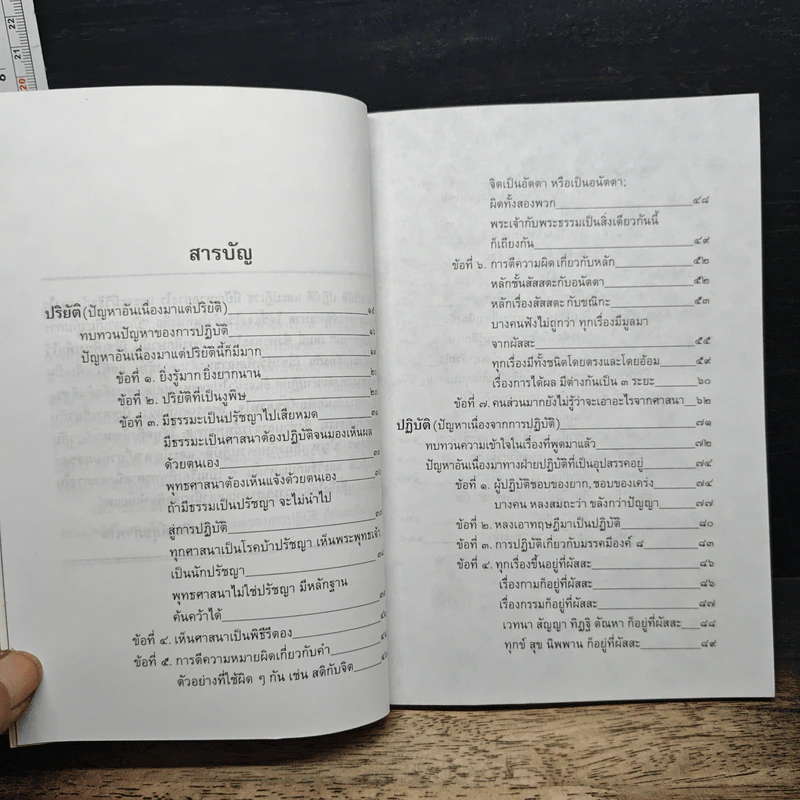 สารบัญ
ปริยัติ (ปัญหาอันเนื่องมาแต่ปริยัติ)
ทบทวนปัญหาของการปฏิบัติ
ปัญหาอันเนื่องมาแต่ปริยัตินี้ก็มีมาก
ข้อที่ ๑. ยิ่งรู้มาก ยิ่งยากนาน
ข้อที่ ๒. ปริยัติที่เป็นงูพิษ
ข้อที่ ๓. มีธรรมะเป็นปรัชญาไปเสียหมด
มีธรรมะเป็นศาสนาต้องปฏิบัติจนมองเห็นผล
ด้วยตนเอง
พุทธศาสนาต้องเห็นแจ้งด้วยตนเอง
ถ้ามีธรรมเป็นปรัชญา จะไม่นำไป
สู่การปฏิบัติ
ทุกศาสนาเป็นโรคบ้าปรัชญา เห็นพระพุทธเจ้า
เป็นนักปรัชญา
พุทธศาสนาไม่ใช่ปรัชญา มีหลักฐาน
ค้นคว้าได้
ข้อที่ ๔. เห็นศาสนาเป็นพิธีรีตอง
ข้อที่ ๕. การตีความหมายผิดเกี่ยวกับคำ
ตัวอย่างที่ใช้ผิด ๆ กัน เช่น สติกับจิต
จิตเป็นอัตตา หรือเป็นอนัตตา;
ผิดทั้งสองพวก ๔๘
พระเจ้ากับพระธรรมเป็นสิ่งเดียวกันนี้
ก็เถียงกัน ๔๙
ข้อที่ ๖. การตีความผิด เกี่ยวกับหลัก ๕๒
หลักชั้นสัสสตะกับอนัตตา ๕๒
หลักเรื่องสัสสตะ กับขณิกะ ๕๓
บางคนฟังไม่ถูกว่า ทุกเรื่องมีมูลมา
จากผัสสะ ๕๕
ทุกเรื่องมีทั้งชนิดโดยตรงและโดยอ้อม ๕๙
เรื่องการได้ผล มีต่างกันเป็น ๓ ระยะ ๖๐
ข้อที่ ๗. คนส่วนมากยังไม่รู้ว่าจะเอาอะไรจากศาสนา ๖๒
ปฏิบัติ (ปัญหาเนื่องจากการปฏิบัติ) ๗๑
ทบทวนความเข้าใจในเรื่องที่พูดมาแล้ว ๗๒
ปัญหาอันเนื่องมาทางฝ่ายปฏิบัติที่เป็นอุปสรรคอยู่ ๗๔
ข้อที่ ๑. ผู้ปฏิบัติชอบของยาก, ชอบของเคร่ง ๗๔
บางคน หลงสมถะว่า ขลังกว่าปัญญา ๗๗
ข้อที่ ๒. หลงเอาทฤษฎีมาเป็นปฏิบัติ ๘๐
ข้อที่ ๓. การปฏิบัติเกี่ยวกับมรรคมีองค์ ๘ ๘๓
ข้อที่ ๔. ทุกเรื่องขึ้นอยู่ที่ผัสสะ ๘๖
เรื่องกามก็อยู่ที่ผัสสะ ๘๖
เรื่องกรรมก็อยู่ที่ผัสสะ ๘๗
เวทนา สัญญา ทิฏฐิ ตัณหา ก็อยู่ที่ผัสสะ ๘๘
ทุกข์ สุข นิพพาน ก็อยู่ที่ผัสสะ ๘๙
20
21
22